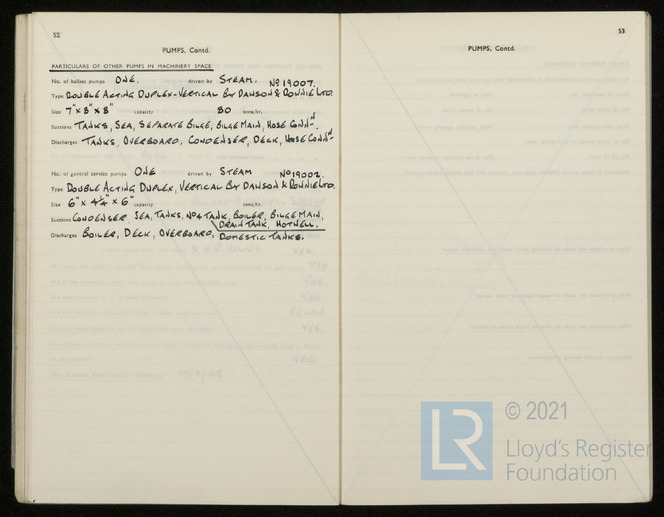 52
PUMPS, Contd.
PARTICULARS OF OTHER PUMPS IN MACHINERY SPACE
No. of ballast pumps ONE. driven by STEAM. No 19007.
Type DOUBLE ACTING DUPLEX-VERTICAL BY DAWSON & DOWNIE LTD.
Size 7" x 8" x 8" capacity 80 tons/hr.
Suctions TANKS, SEA, SEPARATE BILGE, BILGE MAIN, HOSE CONNn.
Discharges TANKS, OVERBOARD, CONDENSER, DECK, HOSE CONNn
No. of general service pumps ONE driven by STEAM No 19002.
Type DOUBLE ACTING DUPLEX, VERTICAL BY DAWSON & DOWNIE LTD.
Size 6" x 4¼" x 6" capacity tons/hr.
Suctions CONDENSER, SEA, TANKS, No 4 TANK, BOILER, BILGE MAIN,
DRAIN TANK, HOTWELL.
Discharges BOILER, DECK, OVERBOARD, DOMESTIC TANKS.
53
PUMPS, Contd.
LR
© 2021
Lloyd's Register
Foundation